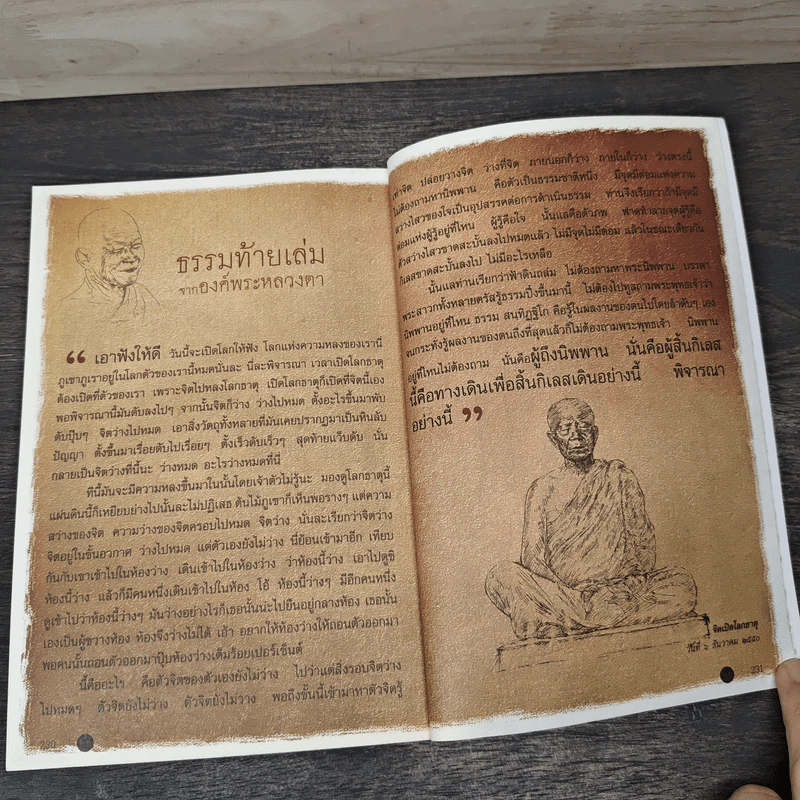 ธรรมท้ายเล่ม
จากองค์พระหลวงตา
“ เอาฟังให้ดี วันนี้จะเปิดโลกให้ฟัง โลกแห่งความหลงของเรานี่
ภูเขาภูเราอยู่ในโลกตัวของเรานี้หมดนั่นละ นี่ละพิจารณา เวลาเปิดโลกธาตุ
ต้องเปิดที่ตัวของเรา เพราะจิตไปหลงโลกธาตุ เปิดโลกธาตุก็เปิดที่จิตนี้เอง
พอพิจารณานี้มันดับลงไปๆ จากนั้นจิตก็ว่าง ว่างไปหมด ตั้งอะไรขึ้นมาพับ
ดับปุ๊บๆ จิตว่างไปหมด เอาสิ่งวัตถุทั้งหลายที่มันเคยปรากฏมาเป็นหินลับ
ปัญญา ตั้งขึ้นมาเรื่อยดับไปเรื่อยๆ ตั้งเร็วดับเร็วๆ สุดท้ายแว็บดับ นั่น
กลายเป็นจิตว่างที่นี้นะ ว่างหมด อะไรว่างหมดที่นี่
ทีนี้มันจะมีความหลงขึ้นมาในนั้นโดยเจ้าตัวไม่รู้นะ มองดูโลกธาตุนี้
แผ่นดินนี้ก็เหยียบย่างไปนั้นละไม่ปฏิเสธ ต้นไม้ภูเขาก็เห็นพอรางๆ แต่ความ
สว่างของจิต ความว่างของจิตครอบไปหมด จิตว่าง นั่นละเรียกว่าจิตว่าง
จิตอยู่ในชั้นอวกาศ ว่างไปหมด แต่ตัวเองยังไม่ว่าง นี่ย้อนเข้ามาอีก เทียบ
กันกับเขาเข้าไปในห้องว่าง เดินเข้าไปในห้องว่าง ว่าห้องนี้ว่าง เอาไปดูซิ
ห้องนี้ว่าง แล้วก็มีคนหนึ่งเดินเข้าไปในห้อง โอ้ ห้องนี้ว่างๆ มีอีกคนหนึ่ง
ดูเข้าไปว่าห้องนี้ว่างๆ มันว่างอย่างไรก็เธอนั้นน่ะไปยืนอยู่กลางห้อง เธอนั้น
เองเป็นผู้ขวางห้อง ห้องจึงว่างไม่ได้ เอ้า อยากให้ห้องว่างให้ถอนตัวออกมา
พอคนนั้นถอนตัวออกมาปุ๊บห้องว่างเต็มร้อยเปอร์เซ็นต์
นี้คืออะไร คือตัวจิตของตัวเองยังไม่ว่าง ไปว่าแต่สิ่งรอบจิตว่าง
ไปหมดๆ ตัวจิตยังไม่ว่าง ตัวจิตยังไม่ว่าง พอถึงขั้นนี้เข้ามาหาตัวจิตรู้
230
เท่าจิต ปล่อยวางจิต ว่างที่จิต ภายนอกก็ว่าง ภายในก็ว่าง ว่างตรงนี้
ไม่ต้องถามหานิพพาน คือตัวเป็นธรรมชาติหนึ่ง มีจุดมีต่อมแห่งความ
สว่างไสวของใจเป็นอุปสรรคต่อการดำเนินธรรม ท่านจึงเรียกว่าถ้ามีจุดมี
ต่อมแห่งผู้รู้อยู่ที่ไหน ผู้รู้คือใจ นั้นแลคือตัวภพ ฟาดทำลายจุดผู้รู้คือ
ตัวสว่างไสวขาดสะบั้นลงไปหมดแล้ว ไม่มีจุดไม่มีต่อม แล้วในขณะเดียวกัน
กิเลสขาดสะบั้นลงไป ไม่มีอะไรเหลือ
นั้นแลท่านเรียกว่าฟ้าดินถล่ม ไม่ต้องถามหาพระนิพพาน บรรดา
พระสาวกทั้งหลายตรัสรู้ธรรมปึ๋งขึ้นมานี้ ไม่ต้องไปทูลถามพระพุทธเจ้าว่า
นิพพานอยู่ที่ไหน ธรรม สนฺทิฏฺฐิโก คือรู้ในผลงานของตนไปโดยลำดับๆ เอง
จนกระทั่งรู้ผลงานของตนถึงที่สุดแล้วก็ไม่ต้องถามพระพุทธเจ้า นิพพาน
อยู่ที่ไหนไม่ต้องถาม นั่นคือผู้ถึงนิพพาน นั่นคือผู้สิ้นกิเลส
นี้คือทางเดินเพื่อสิ้นกิเลสเดินอย่างนี้ พิจารณา
อย่างนี้ ”
จิตเปิดโลกธาตุ
วันที่ ๖ ธันวาคม ๒๕๕๐
231